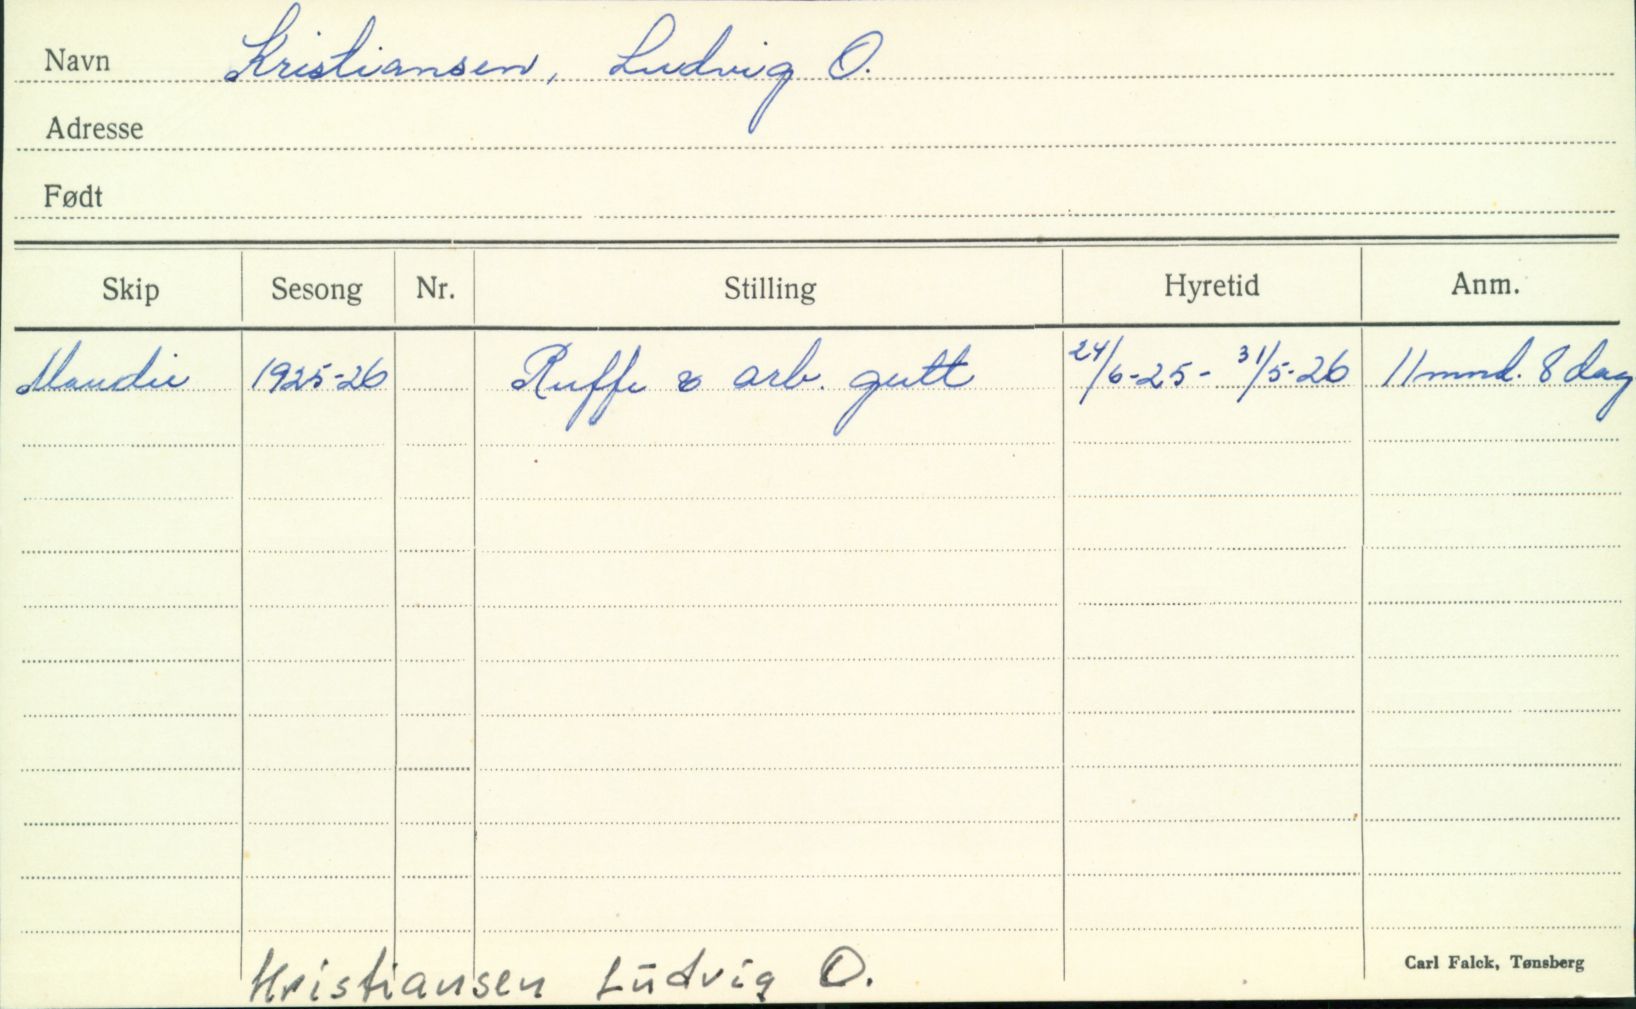 Navn Kristiansen, Ludvig O.
Adresse
Født
Skip Sesong Nr. Stilling Hyretid Anm.
Maudie 1925-26 Ruffe & arb. gutt 24/6-25- 31/5-26 11 mnd. 8 dag
Carl Falck, Tønsberg
Kristiansen Ludvig O.